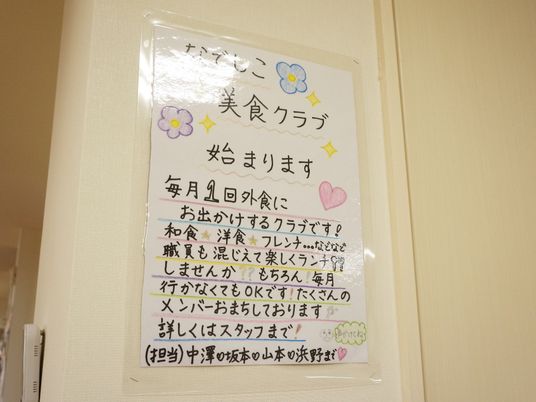 なでしこ
美食クラブ
始まります
毎月1回外食に
お出かけするクラブです!
和食 洋食 フレンチ…などなど
職員も混じえて楽しくランチ
しませんか?? もちろん!毎月
行かなくてもOKです!たくさんの
メンバーおまちしております
詳しくはスタッフまで!
(担当)中澤・坂本・山本・浜野まで♡